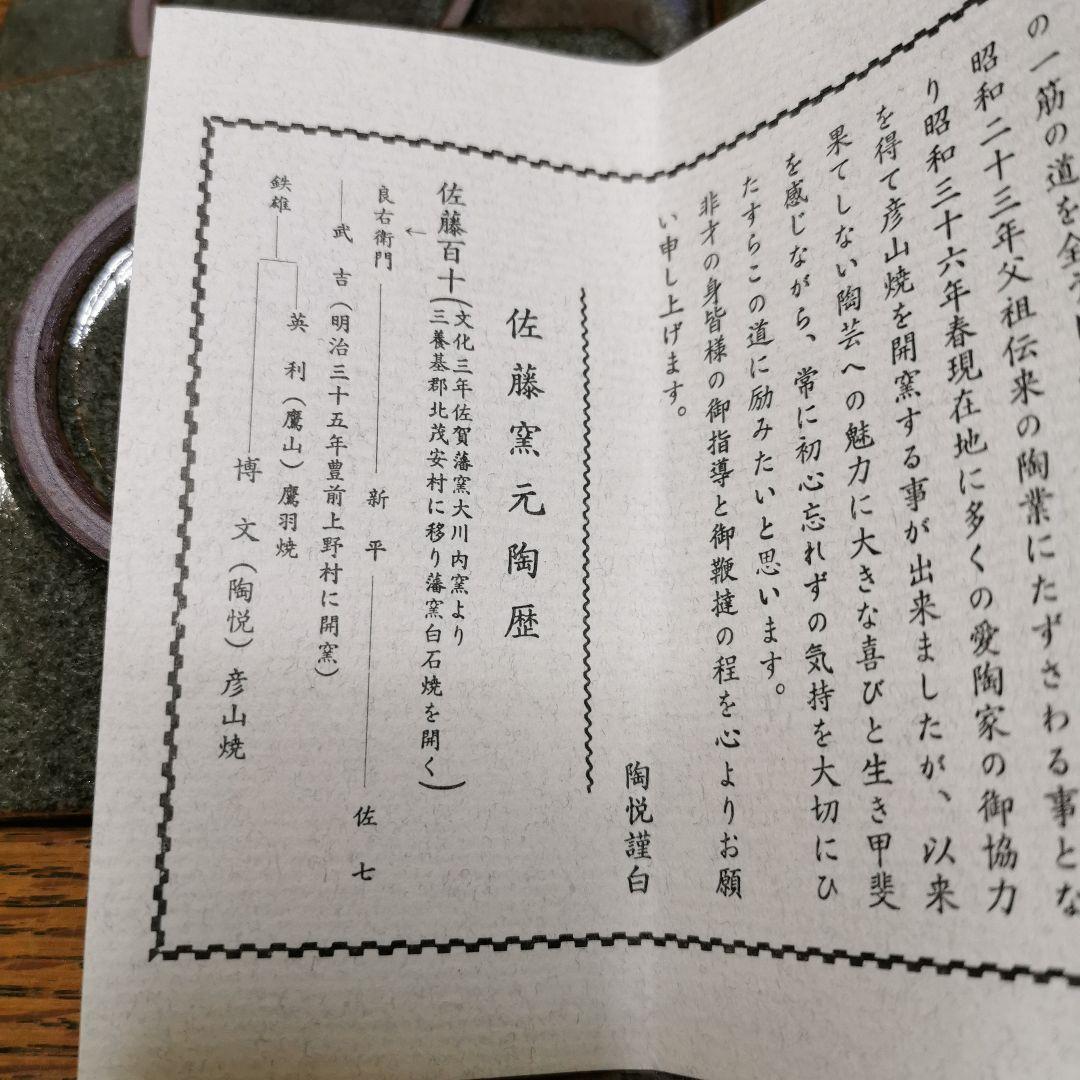 の一筋の道を全
昭和二十三年父祖伝来の陶業にたずさわる事とな
り昭和三十六年春現在地に多くの愛陶家の御協力
を得て彦山焼を開窯する事が出来ましたが、以来
果てしない陶芸への魅力に大きな喜びと生き甲斐
を感じながら、常に初心忘れずの気持を大切にひ
たすらこの道に励みたいと思います。
非才の身皆様の御指導と御鞭撻の程を心よりお願
い申し上げます。
陶悦謹白
佐藤窯元陶歴
佐藤百十(文化三年佐賀藩窯大川内窯より
三養基郡北茂安村に移り藩窯白石焼を開く)
←
良右衛門 新平 佐七
武吉(明治三十五年豊前上野村に開窯)
英利(鷹山)鷹羽焼
鉄雄
博文(陶悦)彦山焼